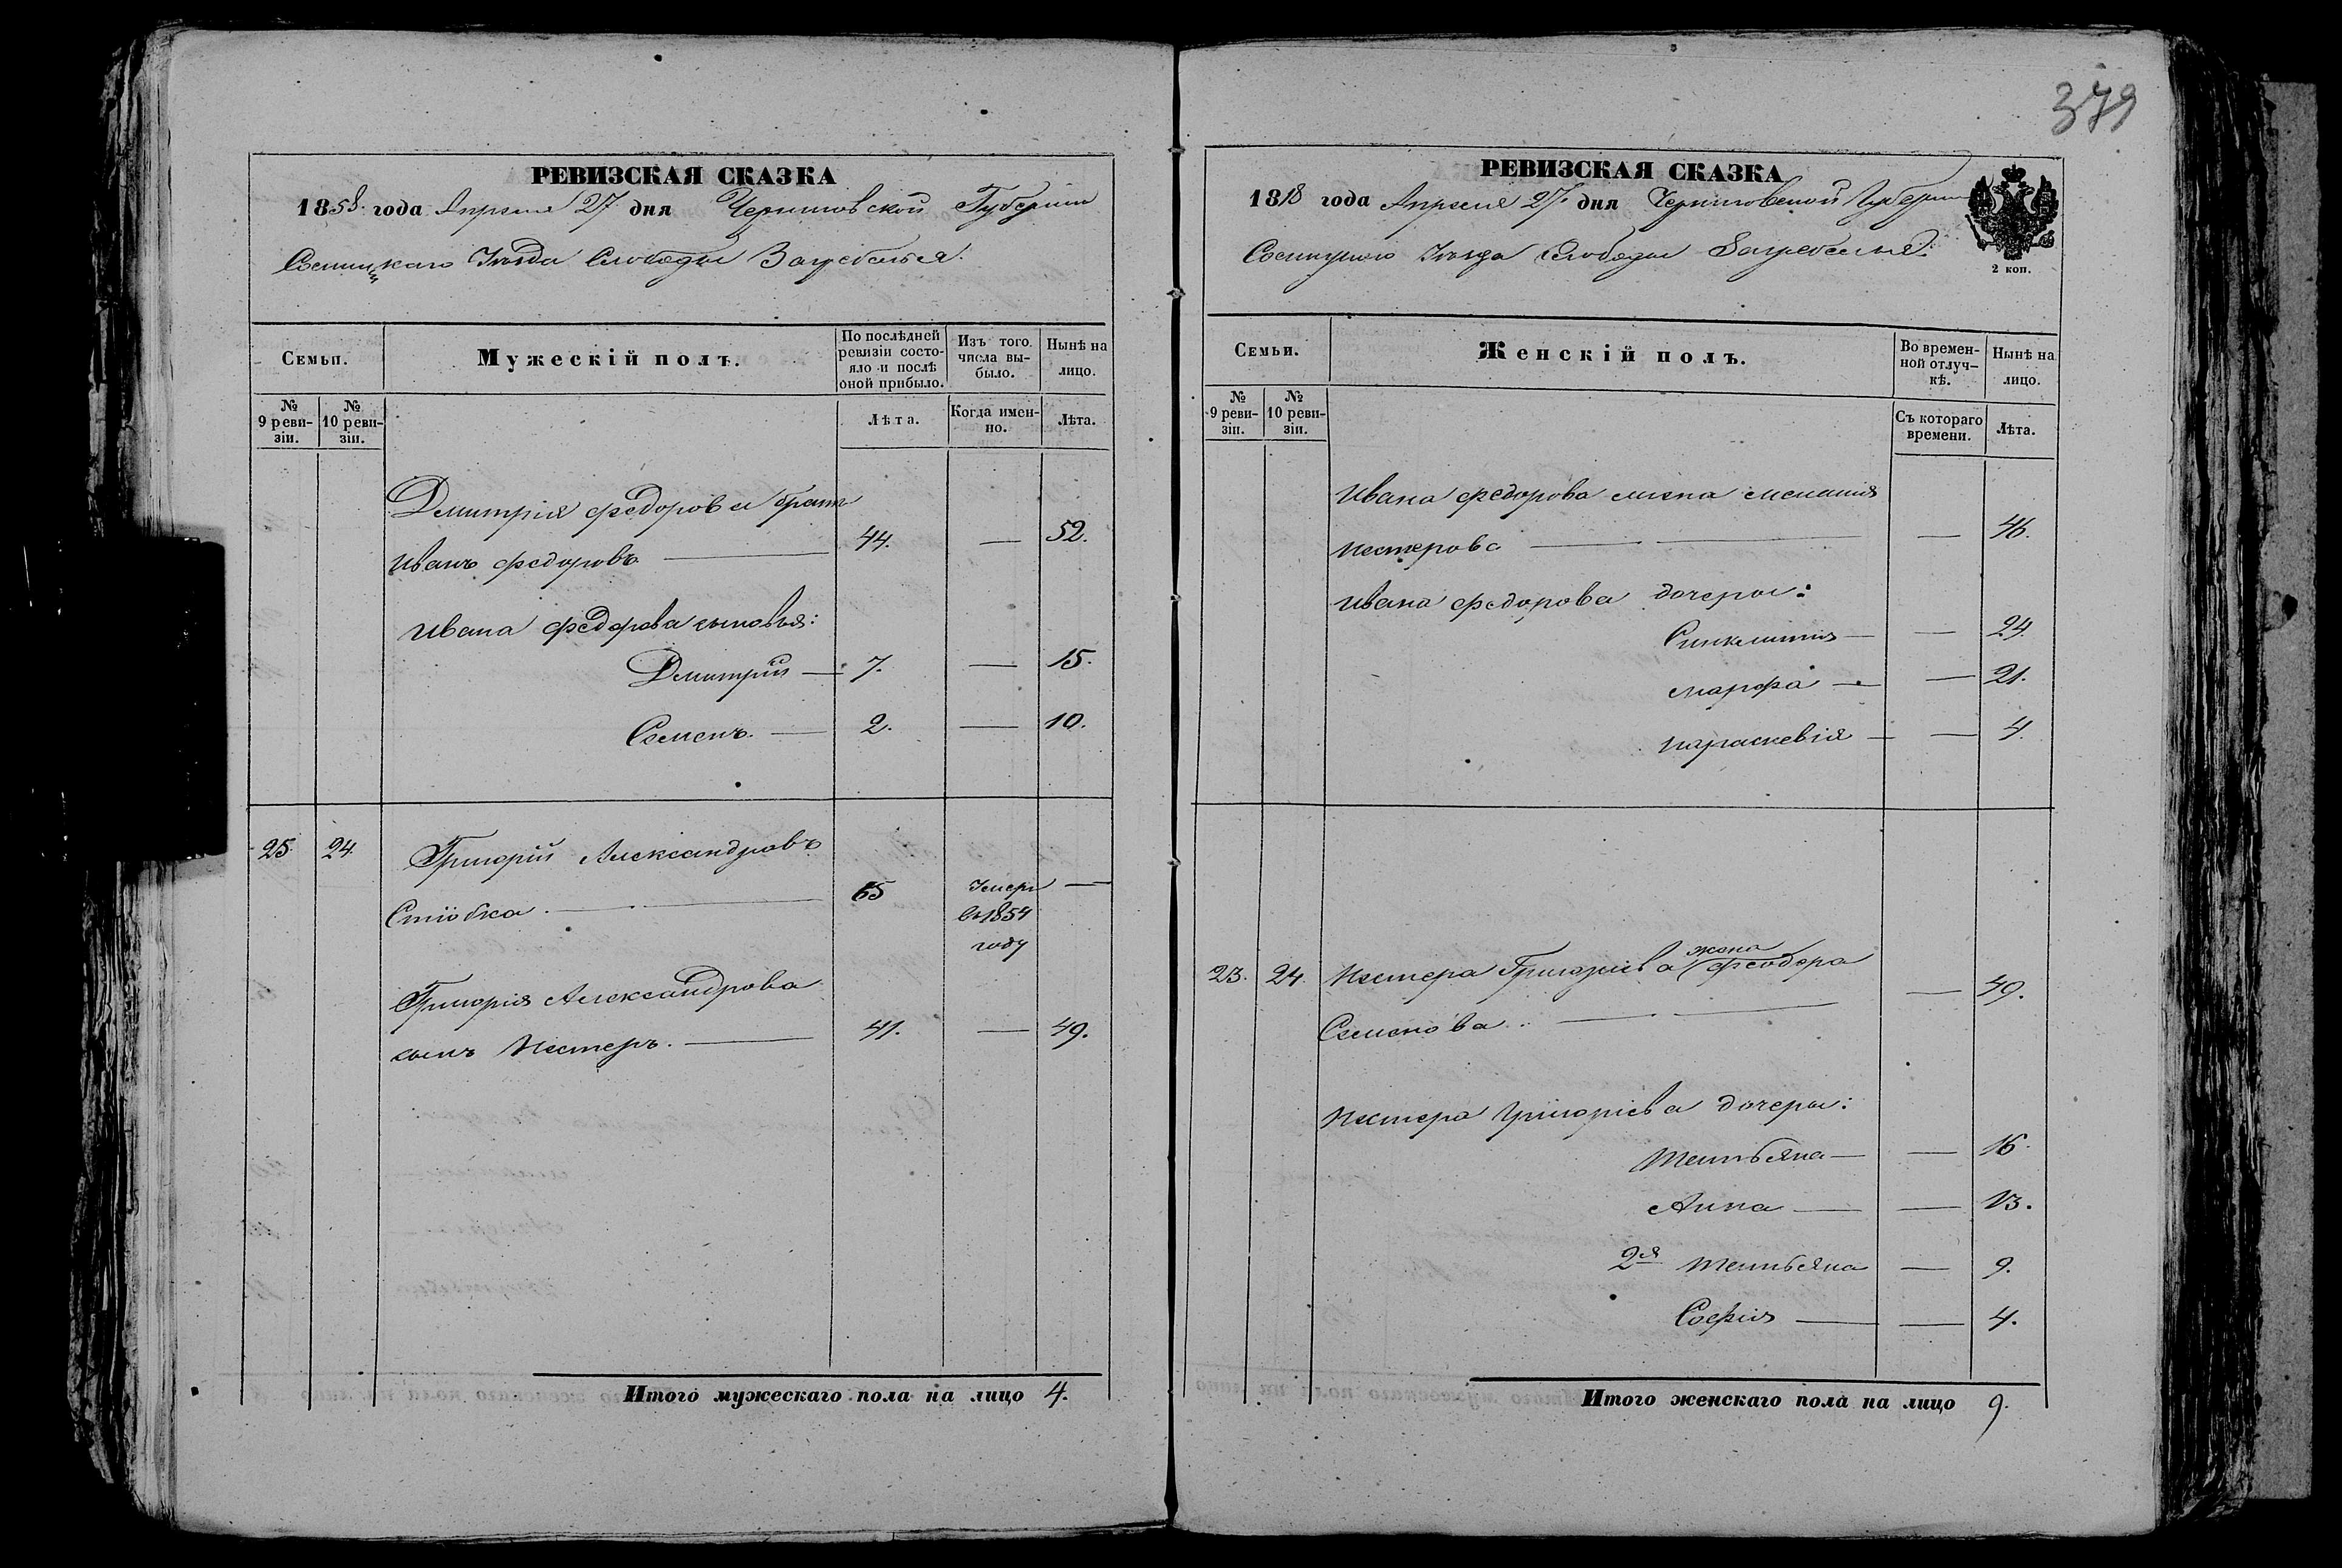 379
РЕВИЗСКАЯ СКАЗКА
1858 года Апреля 27 дня Черниговской Губернии
Сосницкаго Уѣзда Слободы Загребелья.
Семьи.
Мужескій полъ.
По послѣдней ревизіи состояло и послѣ оной прибыло.
Изъ того числа выбыло.
Нынѣ на лицо.
№ 9 ревизіи.
№ 10 ревизіи.
Лѣта.
Когда именно.
Лѣта.
Дмитрія Федорова братъ
Иванъ Федоровъ — 44. — 52.
Ивана Федорова сыновья:
Дмитрій — 7. — 15.
Семенъ — 2. — 10.
25. 24. Григорій Александровъ
Стиобка — 65 Умеръ —
въ 1854
году
Григорія Александрова
сынъ Нестеръ. — 41. — 49.
Итого мужескаго пола на лицо 4.
РЕВИЗСКАЯ СКАЗКА
1858 года Апреля 27 дня Черниговской Губернии
Сосницкаго Уѣзда Слободы Загребелья.
2 коп.
Семьи.
Женскій полъ.
Во временной отлучкѣ.
Нынѣ на лицо.
№ 9 ревизіи.
№ 10 ревизіи.
Съ котораго времени.
Лѣта.
Ивана Федорова жена Меланія
Нестерова — — 46.
Ивана Федорова дочери:
Синклитія — — 24.
Марфа — — 21.
Параскевія — — 4.
23. 24. Нестера Григорьева жена Феодора
Семенова. — — 49.
Нестера Григоріева дочери:
Татьяна — — 16.
Анна — — 13.
2я Татьяна — 9.
Софія — — 4.
Итого женскаго пола на лицо 9.